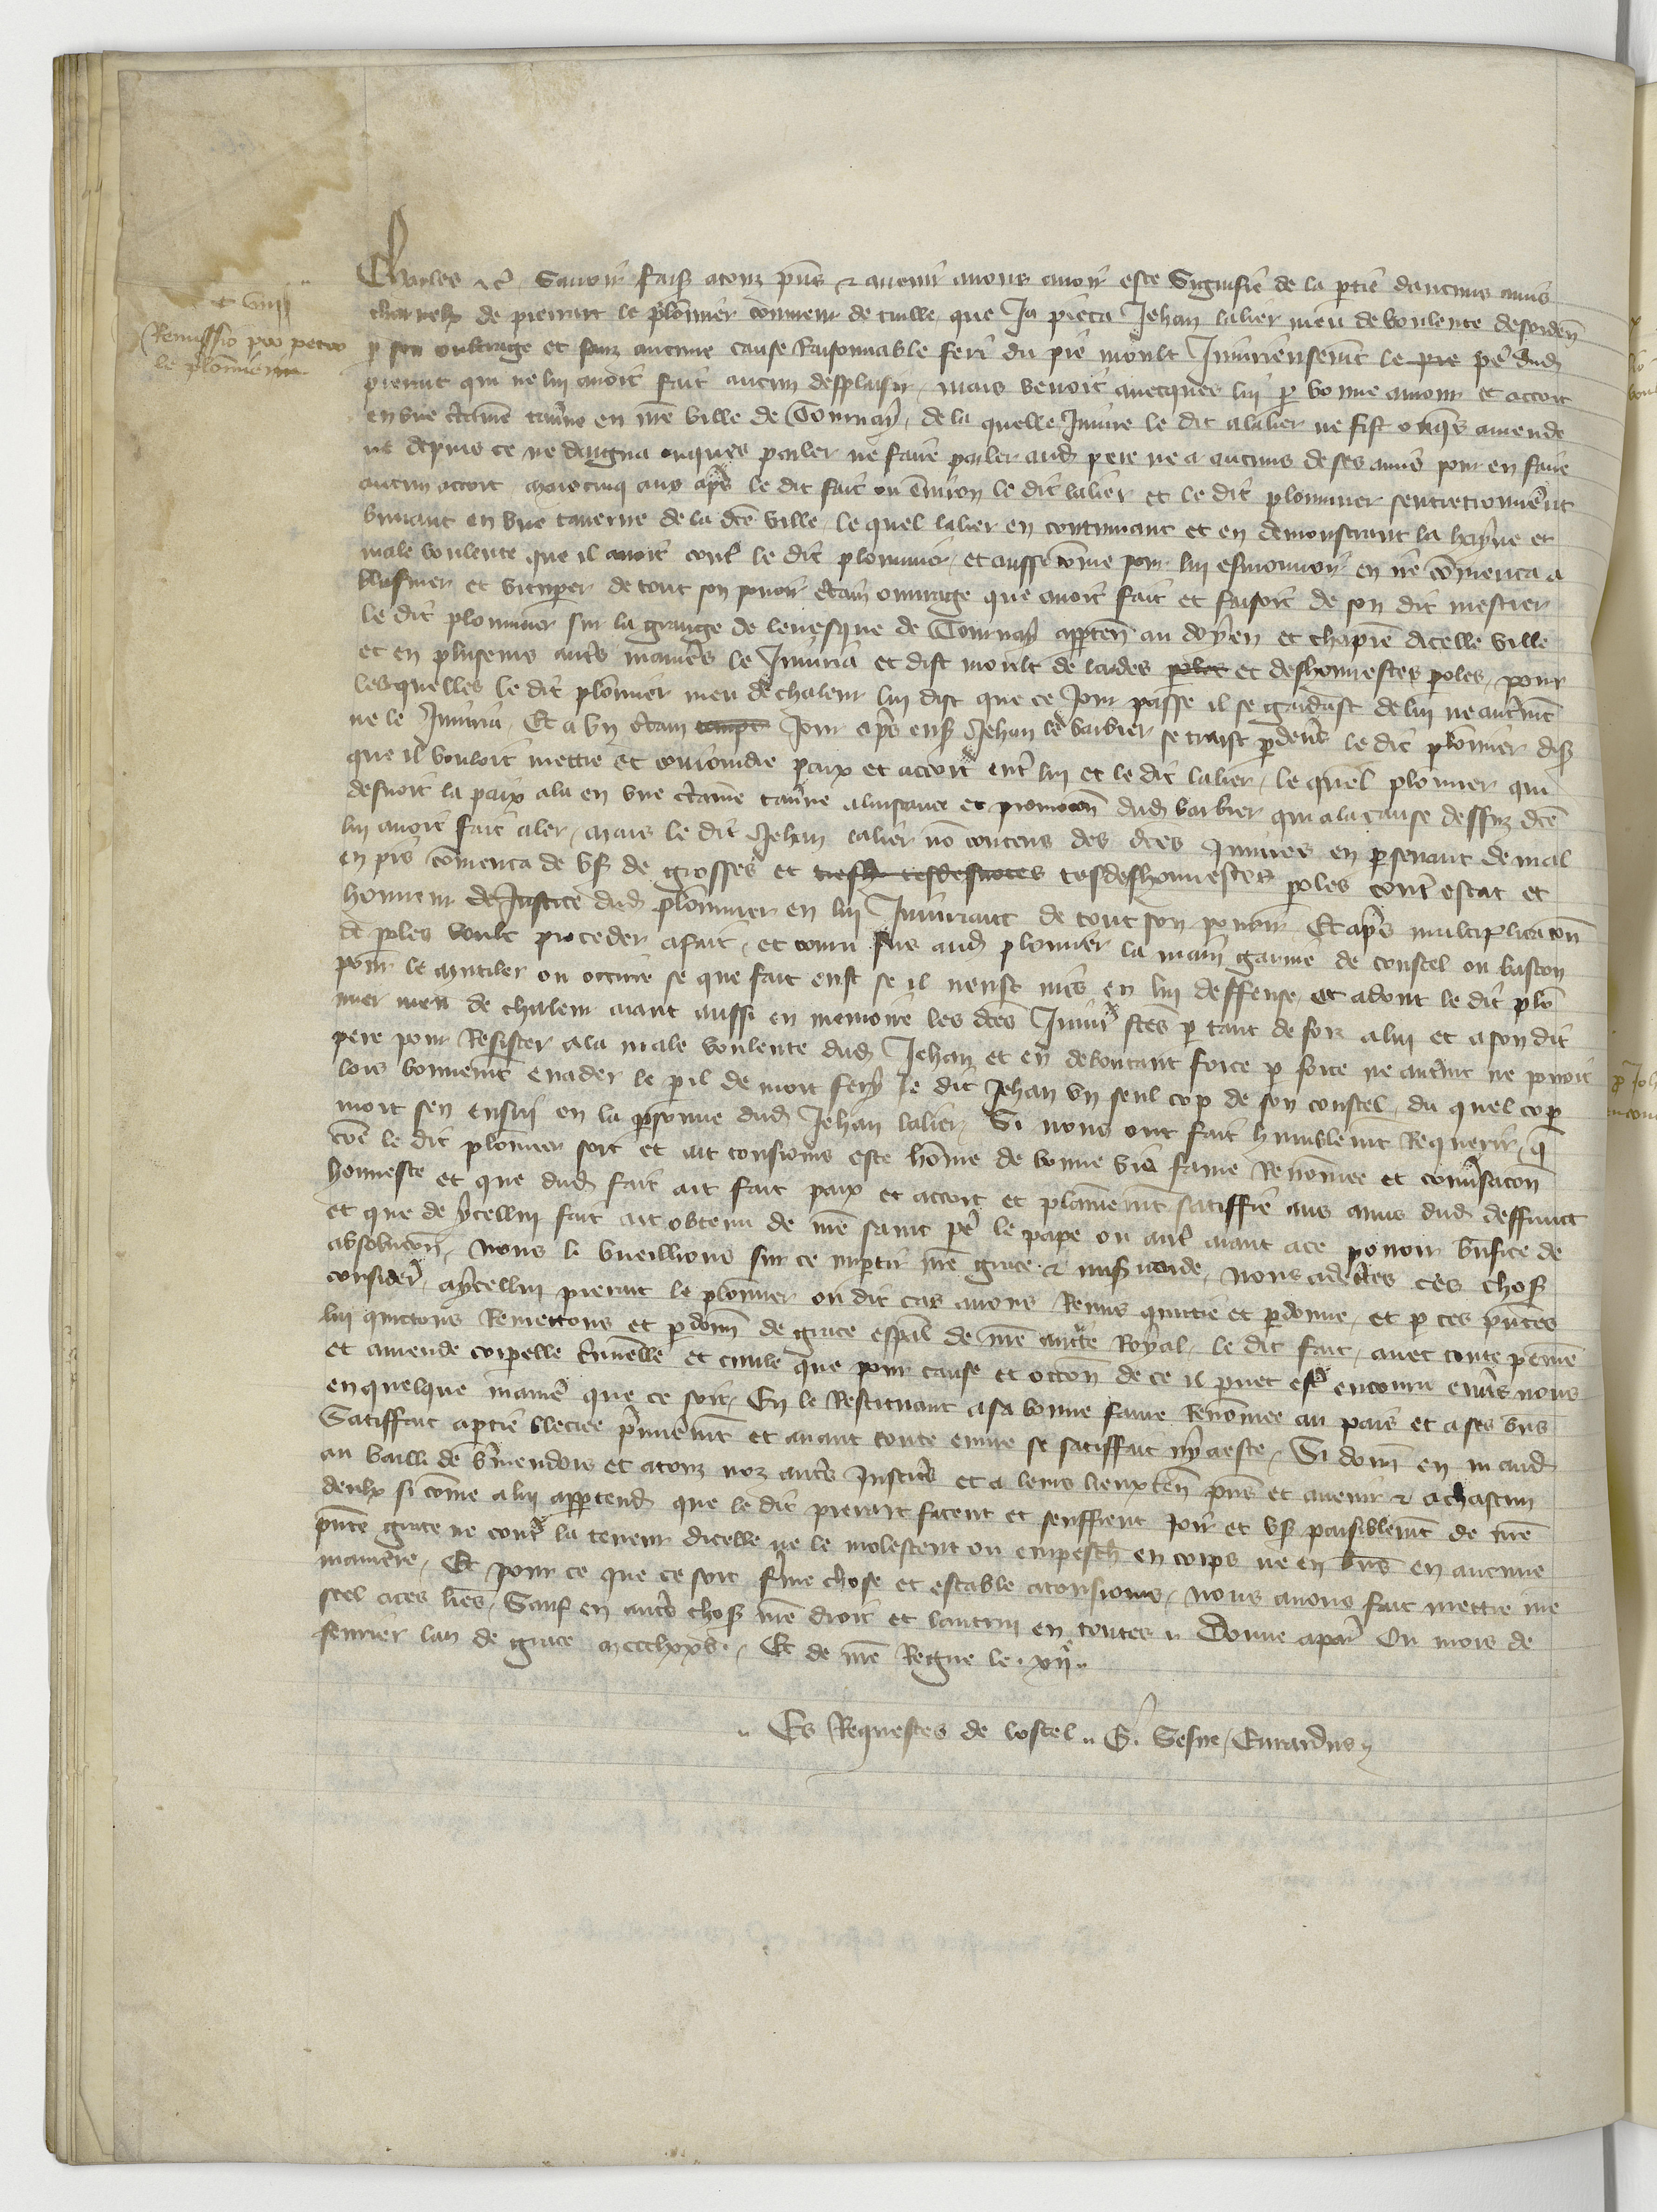 C VIIII
Remissio pro petro
le plommier
Charles etc. Savoir fais. a touz pns et avenir avons avoir este signifie de la ptie daucuns amis
charnelx de pierart le plommier couvreur de tuille, que Ja pieca Jehan lalier meu de voulente desorden
p son oultrage et sanz aucune cause Raisonnable feri du pie moult Iniurieusemt le pere dud
pierart qui ne lui avoit fait aucun desplaisir, mais bevoit avecques lui p bonne amour et accort
en une ctaine taverne en nre ville de Tournay, de la quelle Iniure le dit lalier ne fist onqs amende
ne depuis ce ne daigna onques parler ne faire parler aud pere ne a aucuns de ses amis pour en faire
aucun accort, mais cinq ans aps le dit fait ou environ le dit lalier et le dit plommier sentretrouverent
buvant en une taverne de la dce ville, le quel lalier en continuant et en demonstrant la hayne et
male voulente que il avoit cont le dit plommier, et aussi come pour lui esmouvoir en ire comenca a
blasmer et vituper de tout son povoir ctain ouvrage que avoit fait et faisoit de son dit mestier
le dit plommier sur la grange de levesque de Tournay apten au doyen et chapitre dicelle ville
et en pluseurs autres manies le Iniuria et dist moult de laides et deshonnestes poles, pour
lesquelles le dit plomier meu de chaleur lui dist que ce Jour passe il se gardast de lui ne autremt
ne le Iniuria, Et a un ctain Jour aps ens Jehan le barbier se traist p devs le dit plomier dis
que il vouloit mettre et conioindre paix et accort entre lui et le dit lalier, le quel plomier qui
desiroit la paix ala en une ctaine taverne a linstance et promocion dud barbier qui a la cause dessuz dce
lui avoit fait aler, mais le dit Jehan lalier no contens des dces Iniures en pseverant de mal
en pis comenca de us de grosses et tresdeshonnestes poles contre lestat et
honneur dud plommier en lui Iniuriant de tout son povoir Et aps multiplicacion
de poles voult proceder a fait, et couru sus aud plomier la main garnie de coustel ou baston
pour le mutiler ou occirre se que fait eust se il neust mis en lui deffense, et adont le dit plo
mier meu de chaleur aiant aussi en memoire les dces Iniures fces p tant de foiz a lui et a son dit
pere pour Resister a la male voulente dud Jehan et en deboutant force p force ne autremt ne povoit
lors bonnemt evader le pil de mort fery le dit Jehan un seul cop de son coustel, du quel cop
mort sen ensuii en la psonne dud Jehan lalier, Si nous ont fait humblemt Requerir, q
coe le dit plomier soit et ait tousiours este homme de bonne vie fame Renomee et conversacion
honneste et que dud fait ait fait paix et accort et plainemt satiffie aus amis dud deffunct
et que de ycellui fait ait obtenu de nre saint pe le pape ou autre aiant a ce povoir benfice de
absolucion, nous li vueillions sur ce impartir nre grace et misicorde, nous adctes ces chos
consider, a ycellui pierart le plomier ou dit cas avons Remis quictie et pdonne, et p ces pntes
lui quictons Remettons et pdonn de grace espal de nre aucte Royal, le dit fait, avec toute peine
et amende corpelle criminelle et civile que pour cause et occon de ce il puet estre encouru envs nous
en quelque manie que ce soit, En le Restituant a sa bonne fame Renomee au pais et a ses bns
Satiffait a ptie bleciee premieremt et avant toute euvre se satiffait ny a este, Si donn en mand
au bailli de Vermendois et a touz noz autres Justiciers et a leurs lieuxten pns et avenir et a chascun
deulx si comme a lui appartend que le dit pierart facent et seuffrent Joir et us paisiblemt de nre
pnte grace ne contre la teneur dicelle ne le molestent ou empesch en corps ne en bns en aucune
maniere, Et pour ce que ce soit ferme chose et estable a tousiours, nous avons fait mettre nre
scel a ces lres, Sauf en autres chos nre droit et lautrui en toutes. Donne a par Ou mois de
fevrier lan de grace mccclxxv. Et de nre Regne le xije
Es Requestes de lostel. G. Sesne, Evrardus